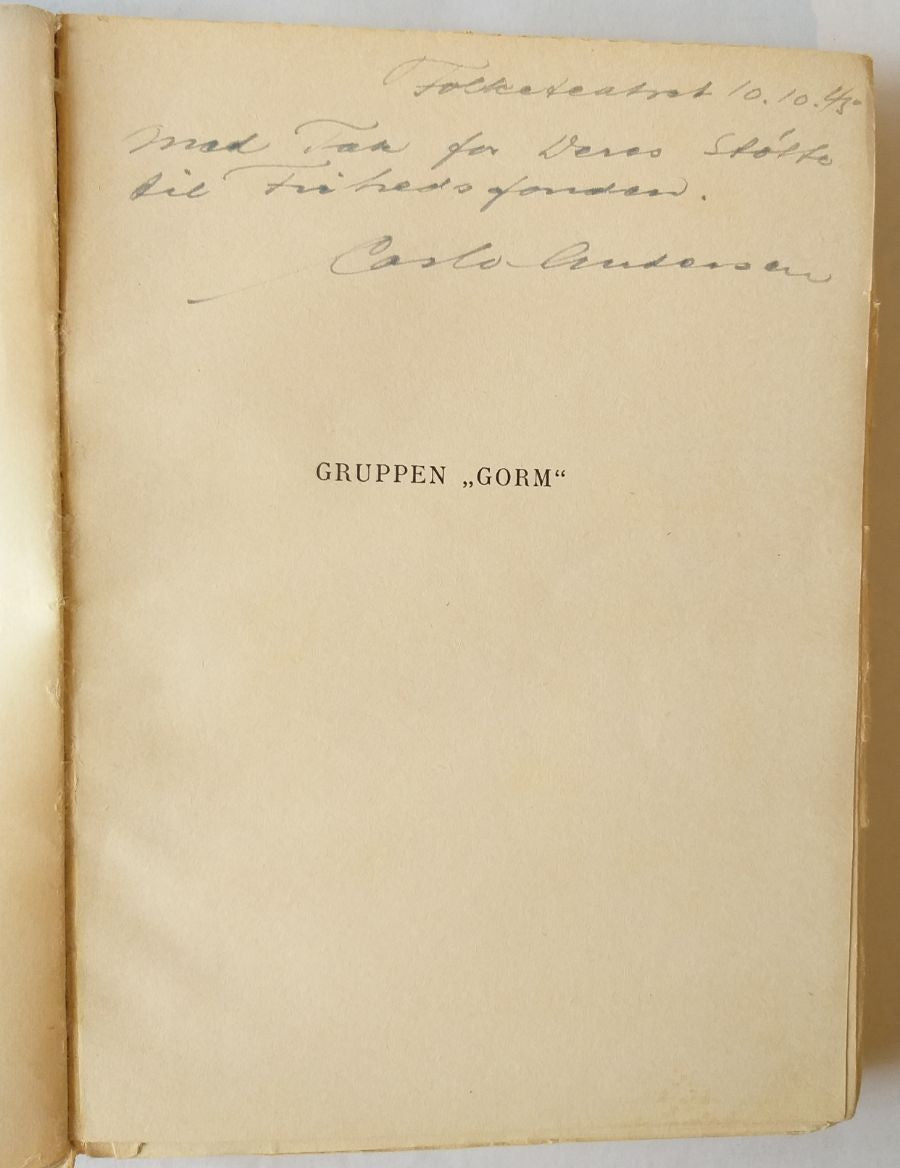 Folketeatret 10.10.45
Med Tak for Deres Støtte
til Frihedsfonden.
Carlo Andersen
GRUPPEN „GORM“